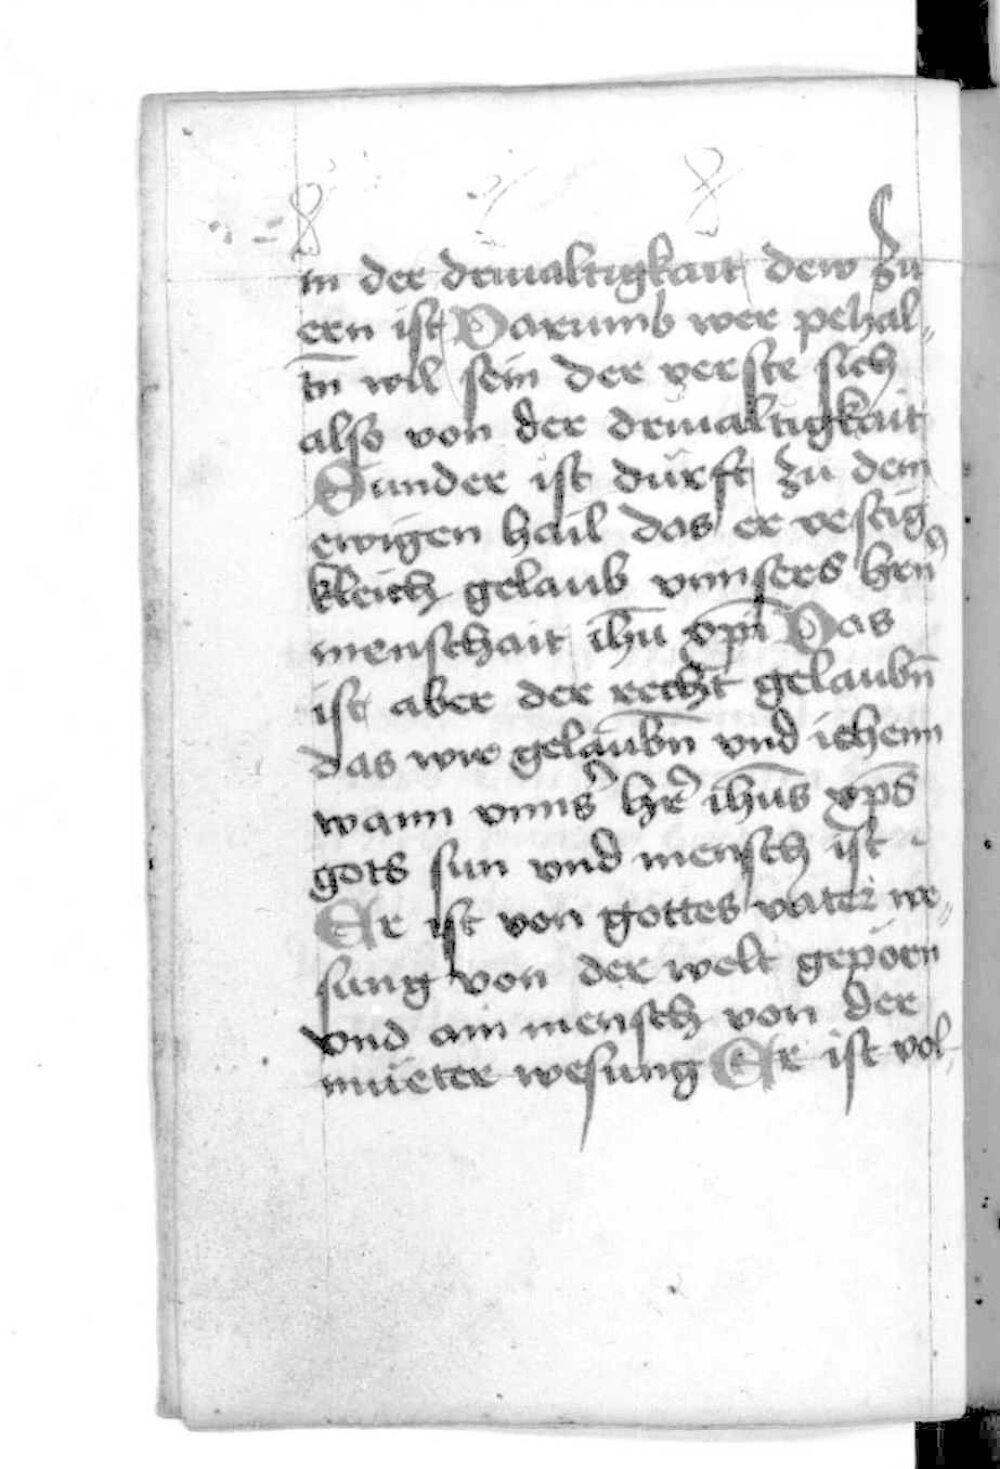 in der driualtigkait dew zu
ern ist Darumb wer pehal„
tn̄ wil sein der verste sich
also von der driualtigkait
Sunder ist dürft zu dem
ewigen hail das er vestig
kleich gelaub vnnsers hrn̄
menschait ihū xpī Das
ist aber der recht gelaubn̄
das wir gelaubn̄ vnd iehenn
wann vnnsʼ hrʼ ihūs xp̄s
gots sun vnd mensch ist
Er ist von gottes vater we„
sung von der welt geporn
vnd ain mensch von der
mueter wesung Er ist vol„